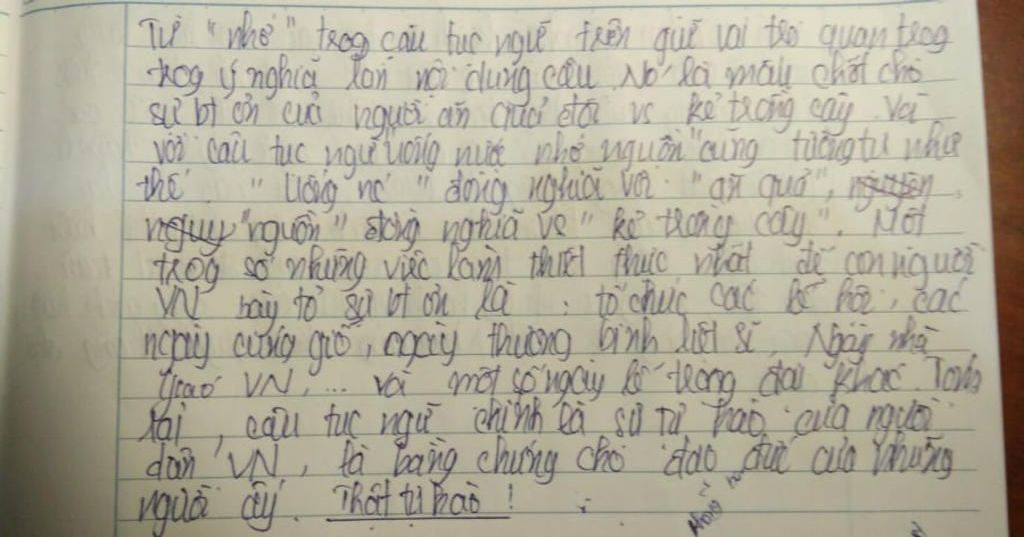 Từ "nhớ" trog câu tục ngữ trên giữ vai trò quan trog
trog ý nghĩa lẫn nội dung câu. Nó là mấu chốt cho
sự bt ơn của người ăn quả đối vs kẻ trồng cây. Và
với câu tục ngữ "uống nước nhớ nguồn" cũng tương tự như
thế. "Uống nc" đồng nghĩa với "ăn quả",
"nguồn" đồng nghĩa vs "kẻ trồng cây". Một
trog số những việc làm thiết thực nhất để con người
VN bày tỏ sự bt ơn là : tổ chức các lễ hội, các
ngày cúng giỗ, ngày thương binh liệt sĩ, Ngày nhà
giáo VN, ... và một số ngày lễ trọng đại khác. Tóm
lại, câu tục ngữ chính là sự tự hào của người
dân VN, là bằng chứng cho đạo đức của những
người ấy. Thật tự hào !